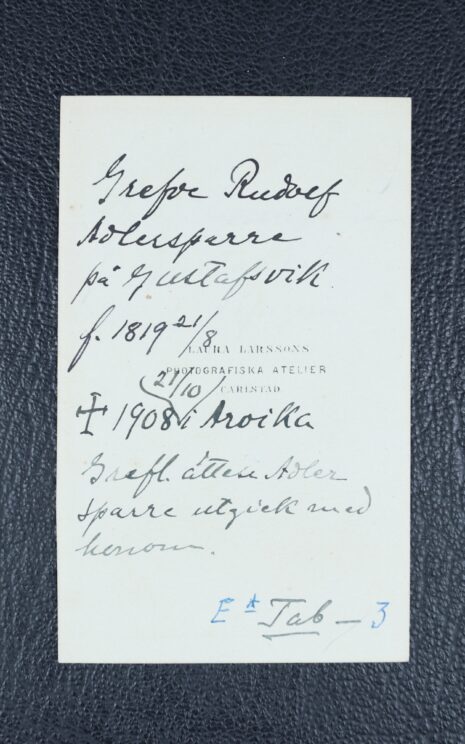 Grefve Rudolf
Adlersparre
på Gustafsvik
f. 1819 21/8
LAURA LARSSONS
PHOTOGRAFISKA ATELIER
CARLSTAD
21/10
✝ 1908 i Arvika
Grefl. ätten Adler
sparre utgick med
honom.
E * Tab – 3